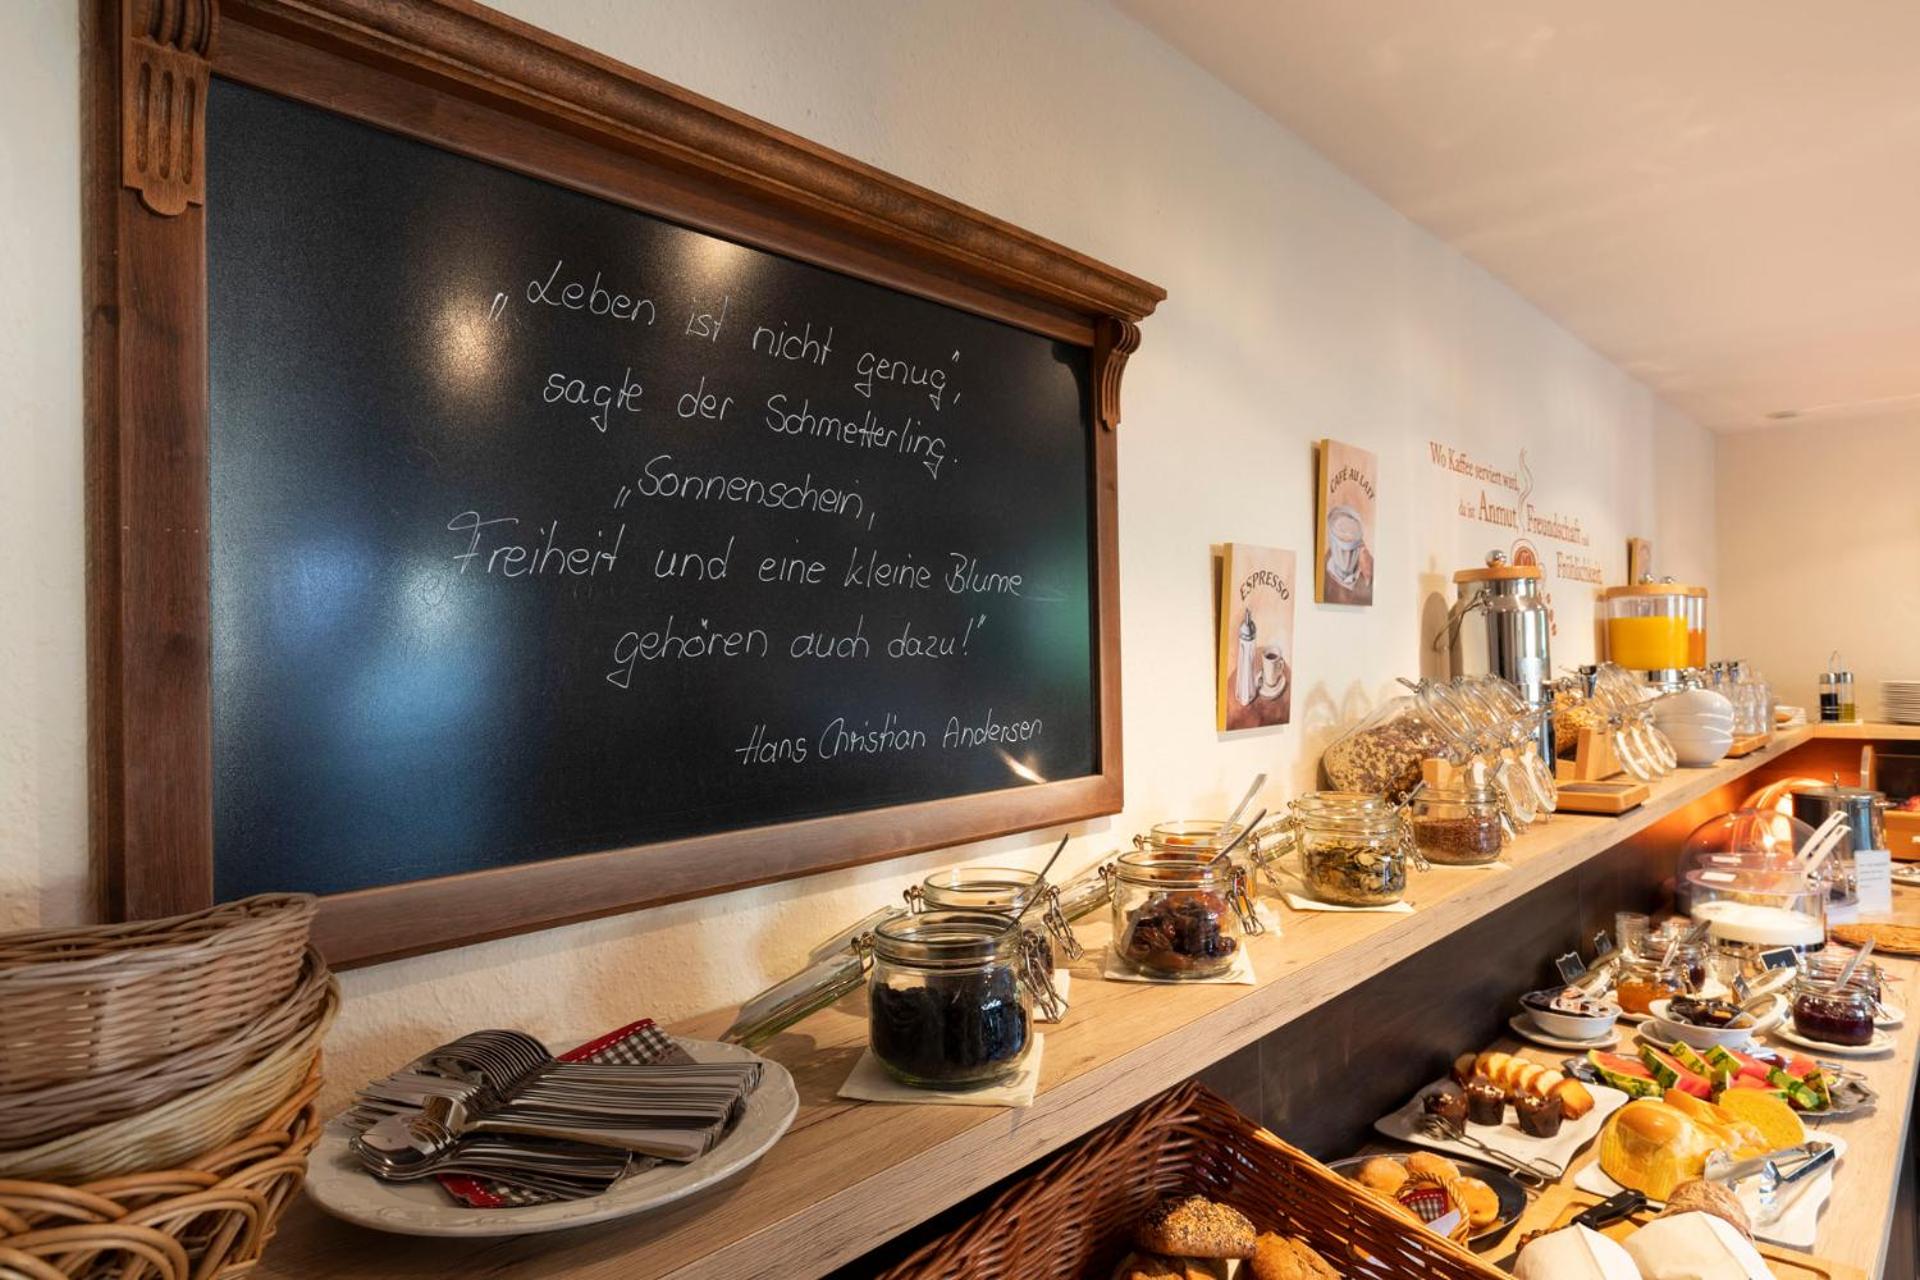 „Leben ist nicht genug“,
sagte der Schmetterling.
„Sonnenschein,
Freiheit und eine kleine Blume
gehören auch dazu!“
Hans Christian Andersen
ESPRESSO
CAFÉ AU LAIT
Wo Kaffee serviert wird,
da ist Anmut, Freundschaft und
Fröhlichkeit.